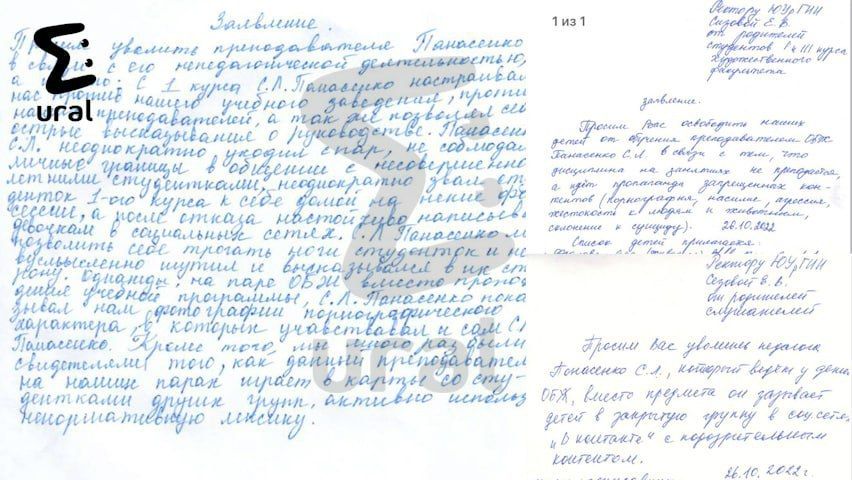 Заявление.
Просим уволить преподавателя Панасенко
в связи с его непедагогической деятельностью,
а С 1 курса С.Л. Панасенко настраивал
нас против нашего учебного заведения, проти
преподавателей, а так же позволял се
острые высказывания о руководстве. Панасен
С.Л. неоднократно уходил с пар, не соблюдал
личные границы в общении с несовершенно
летними студентками, неоднократно звал ст
денток 1-ого курса к себе домой на некие фо
сессии, а после отказа настойчиво написыва
девочкам в социальных сетях. С.Л Панасенко м
позволить себе трогать ноги студенток и не
вусмысленно шутил и высказывался в их ст
рону. Однажды, на паре ОБЖ вместо прохо
дения учебной программы, С.Л. Панасенко пока
зывал нам фотографии порнографического
характера, в которых учавствавал и сам С.
Панасенко. Кроме того, мы много раз были
свидетелями того, как данный преподавател
на наших парах играет в карты со сту-
дентками других групп, активно использ
ненормативную лексику.
ural
ural
1 из 1
Ректору ЮУрГИИ
Сизовой Е.В.
от родителей
студентов I и III курса
художественного
факультета
заявление.
Просим Вас освободить наших
детей от обучения преподавателем ОБЖ
Панасенко С.Л. в связи с тем, что
дисциплина на занятиях не преподается,
а идёт пропаганда запрещенных кон-
тентов (порнография, насилие, агрессия,
жестокость к людям и животным,
склонение к суициду). 26.10.2022
Список детей прилагается:
Ректору ЮУрГИИ
Сезовой Е.В.
от родителей
слушателей
Просим Вас уволить педагога
Панасенко С.Л., который ведёт у
ОБЖ, вместо предмета он зазывает
детей в закрытую группу в соц.сетях
"В контакте" с подозрительным
контентом.
26.10.2022г.